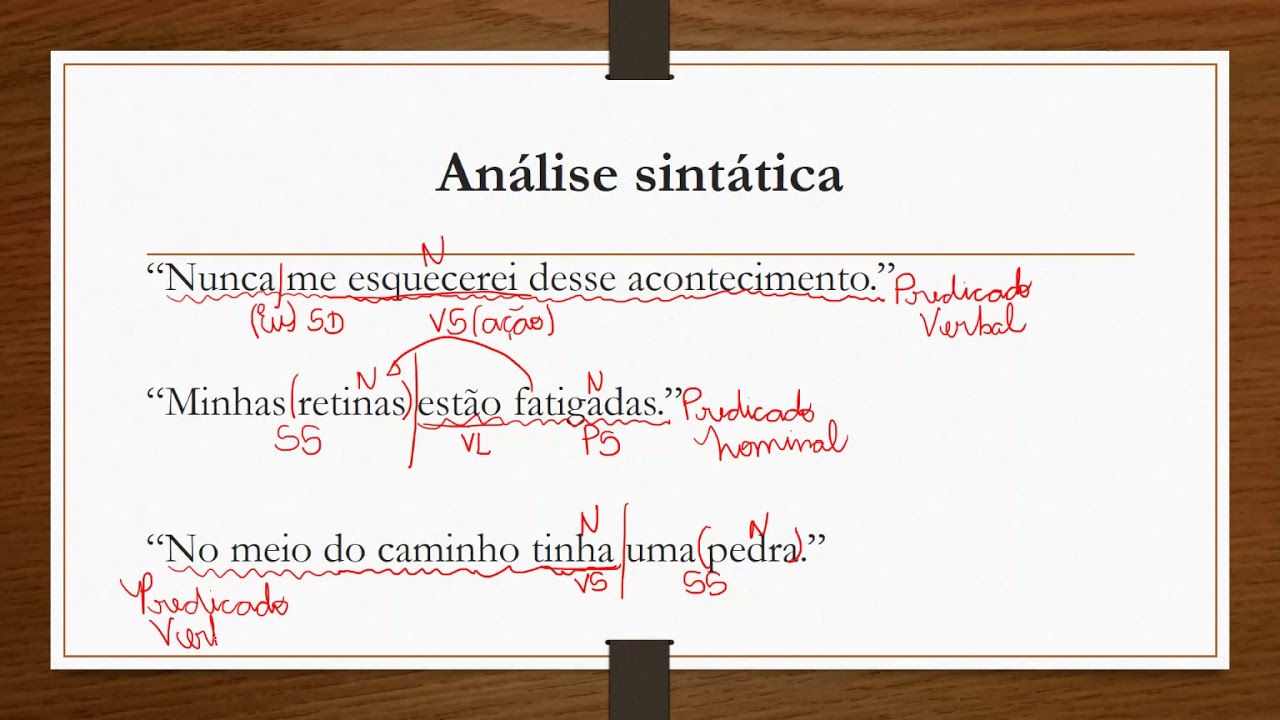 Análise sintática
N
“Nunca me esquecerei desse acontecimento.” Predicado
(Eu) SD VS (ação) Verbal
N N
“Minhas (retinas) estão fatigadas.” Predicado
SS VL PS nominal
N N
“No meio do caminho tinha uma (pedra).”
VS SS
Predicado
Verl